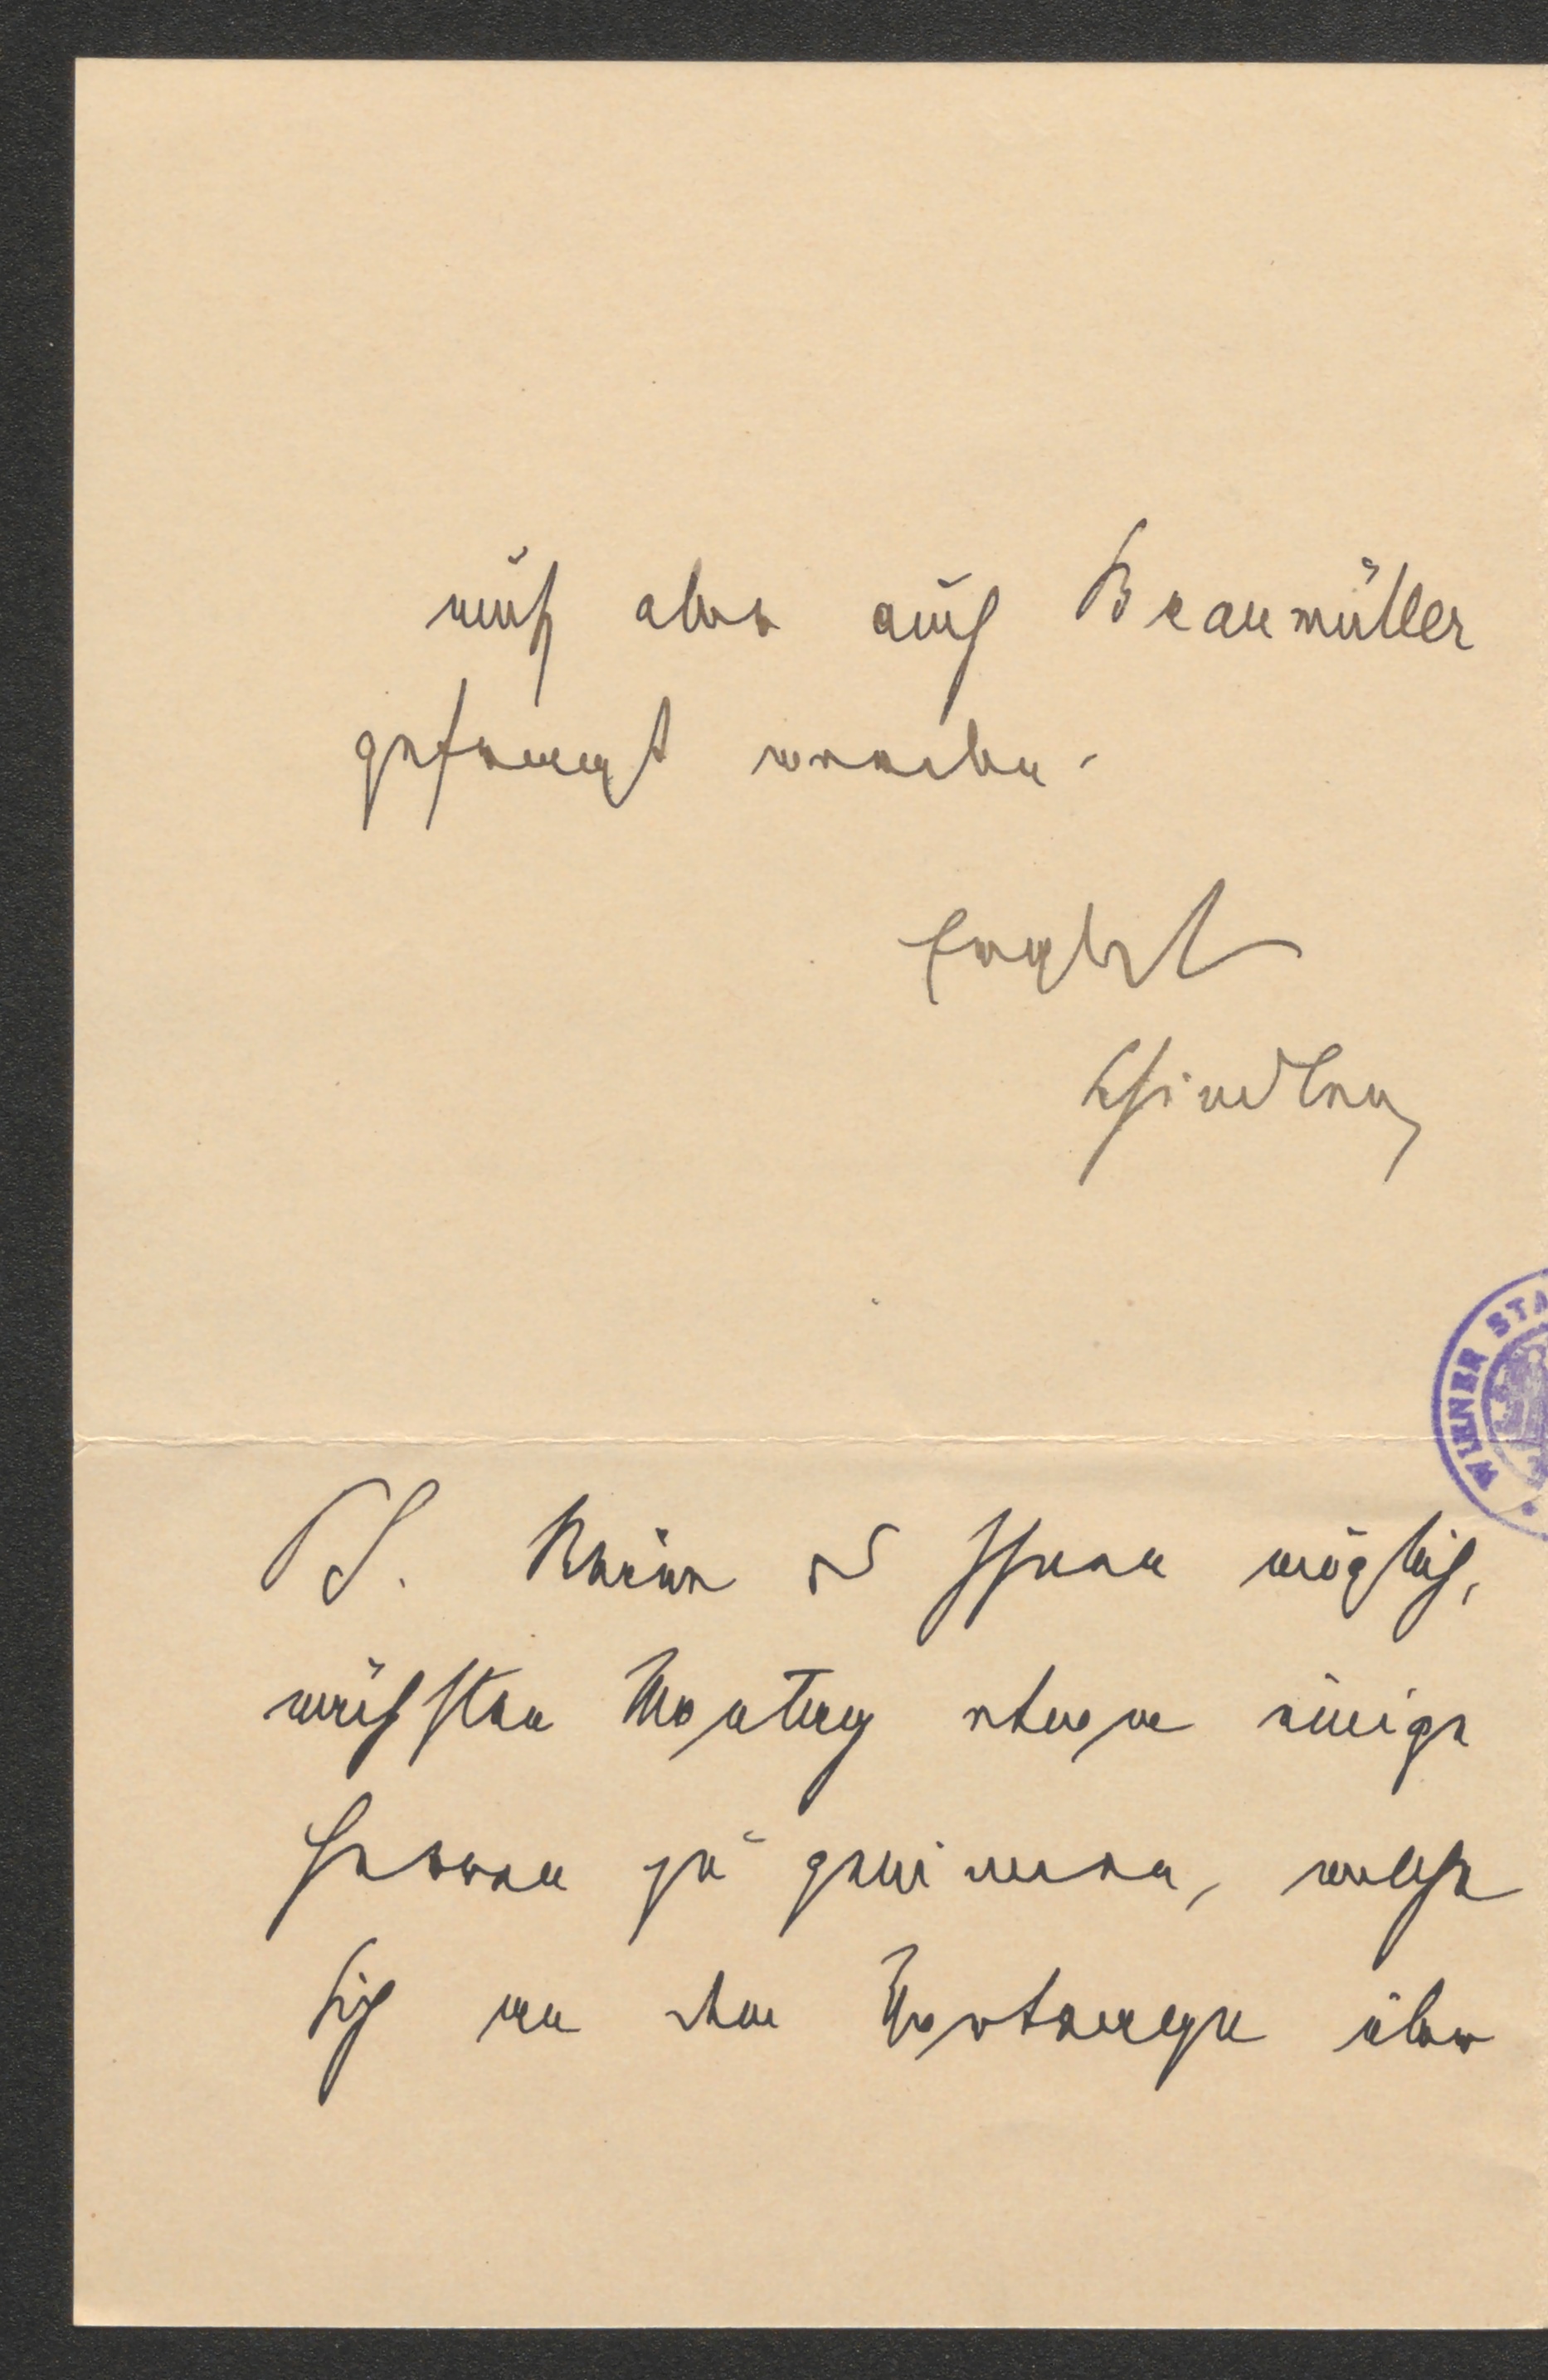 muß aber auch Braumüller
gefragt werden.
ergebenst
Schindler
WIENER STA
P.S. Wäre es Ihnen möglich,
nächsten Montag etwa einige
Herren zu gewinnen, welche
sich an dem Vortrage über